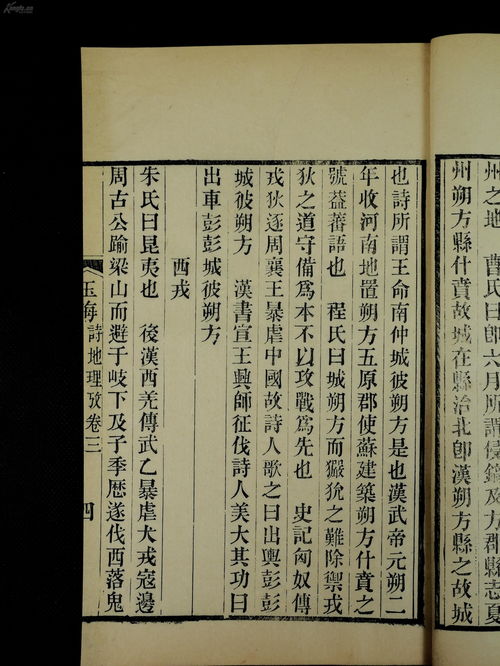 州之地 曹氏曰即六月所謂侵鎬及方郡縣志夏
州朔方縣什賁故城在縣治北即漢朔方縣之故城
也詩所謂王命南仲城彼朔方是也漢武帝元朔二
年收河南地置朔方五原郡使蘇建築朔方什賁之
號蓋蕃語也 程氏曰城朔方而玁狁之難除禦戎
狄之道守備爲本不以攻戰爲先也 史記匈奴傳
戎狄逐周襄王暴虐中國故詩人歌之曰出輿彭彭
城彼朔方 漢書宣王興師征伐詩人美大其功曰
出車彭彭城彼朔方
西戎
朱氏曰昆夷也 後漢西羌傳武乙暴虐犬戎寇邊
周古公踰梁山而避于岐下及子季歷遂伐西落鬼
玉海 詩地理攷卷三 四